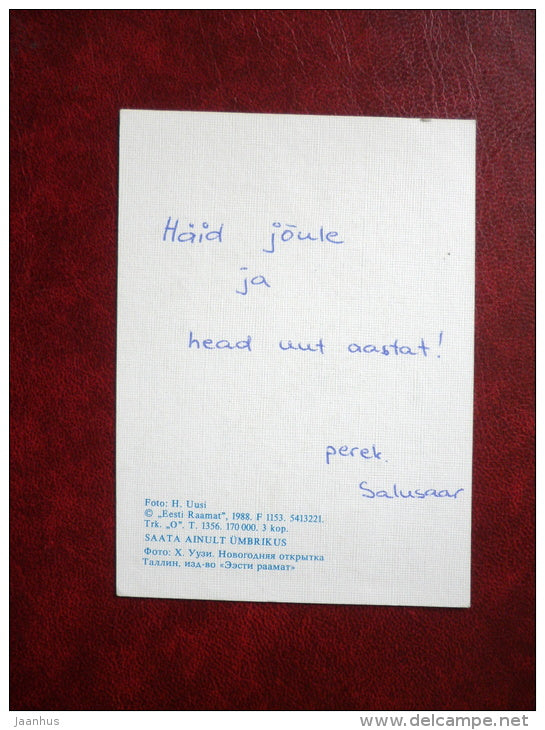 Häid jõule
ja
head uut aastat!
perek.
Salusaar
Foto: H. Uusi
© „Eesti Raamat", 1988. F 1153. 5413221.
Trk. „O". T. 1356. 170 000. 3 kop.
SAATA AINULT ÜMBRIKUS
Фото: Х. Уузи. Новогодняя открытка
Таллин, изд-во «Ээсти раамат»
Jaanhus
www.delcampe.net